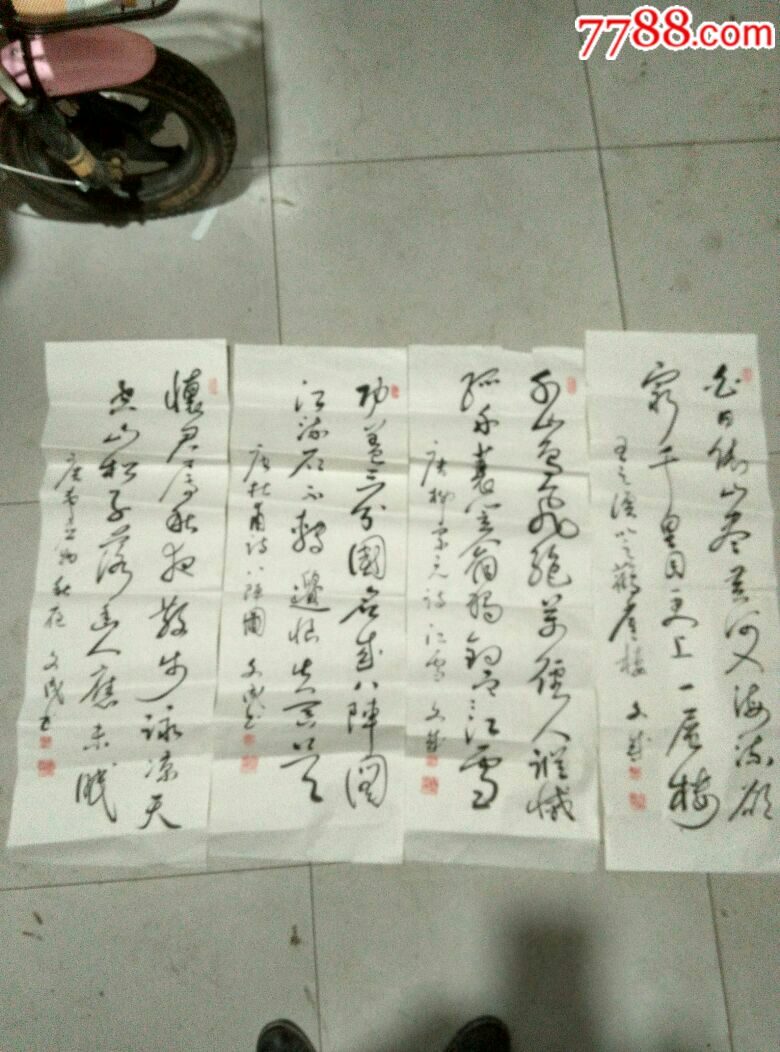 7788.com
白日依山尽黄河入海流欲
窮千里目更上一層楼
王之涣登鹳雀楼 文成
千山鸟飛絶萬徑人踪滅
孤舟蓑笠翁独钓寒江雪
唐柳宗元诗江雪 文成
功盖三分國名成八陣图
江流石不轉遗恨失吞吴
唐杜甫诗八阵圖 文成书
懷君属秋夜散步詠凉天
空山松子落幽人應未眠
唐韦应物秋夜 文成书